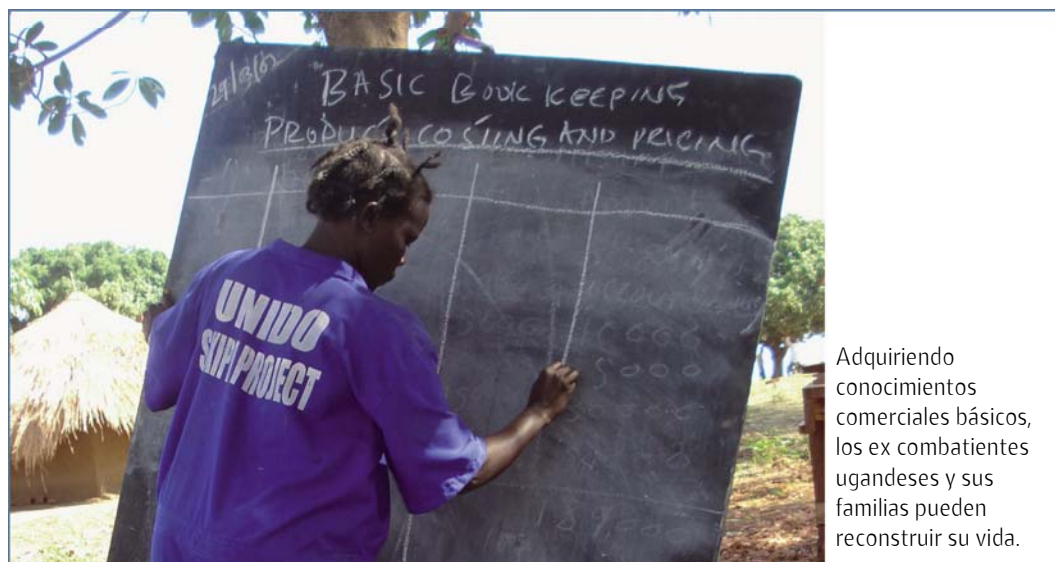 29/3/02
BASIC BOOK KEEPING
PRODUCT COSTING AND PRICING
5000
UNIDO
SKIPI PROJECT
Adquiriendo
conocimientos
comerciales básicos,
los ex combatientes
ugandeses y sus
familias pueden
reconstruir su vida.